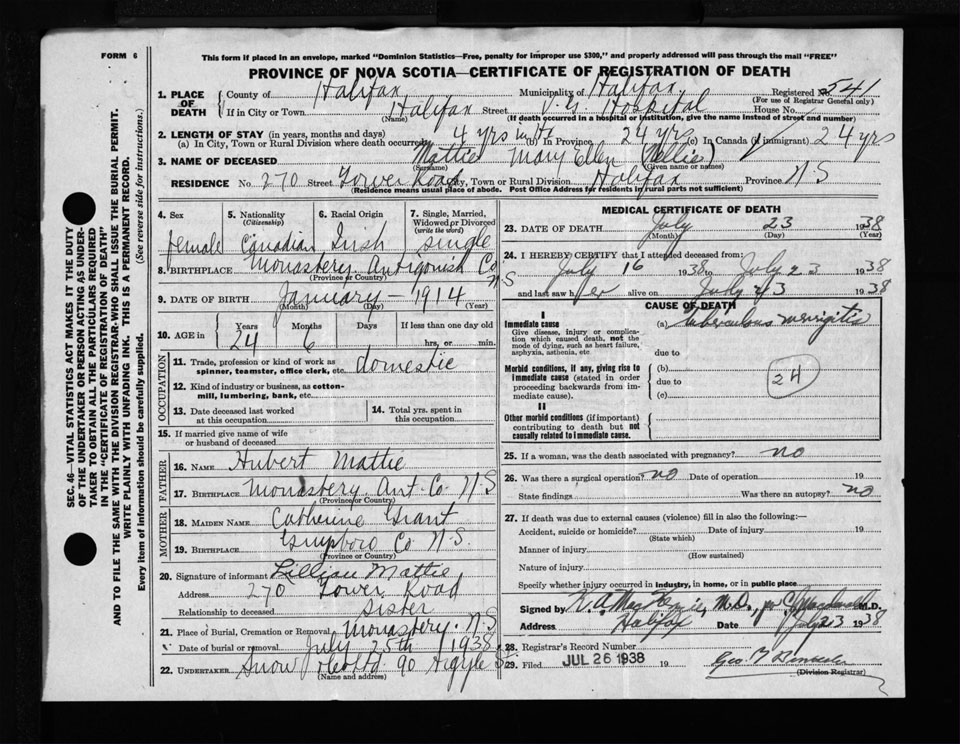 FORM 6
This form if placed in an envelope, marked "Dominion Statistics—Free, penalty for improper use $300," and properly addressed will pass through the mail "FREE"
PROVINCE OF NOVA SCOTIA—CERTIFICATE OF REGISTRATION OF DEATH
1. PLACE OF DEATH County of Halifax Municipality of Halifax Registered No. 541
(For use of Registrar General only)
If in City or Town Halifax Street V.G. Hospital House No.
(Name) (If death occurred in a hospital or institution, give the name instead of street and number)
2. LENGTH OF STAY (in years, months and days)
(a) In City, Town or Rural Division where death occurred 4 yrs (b) In Province 24 yrs (c) In Canada (if immigrant) 24 yrs
3. NAME OF DECEASED Mattie Mary Ellen (Nellie)
(Surname) (Given name or names)
RESIDENCE No. 270 Street Tower Road City, Town or Rural Division Halifax Province N.S
(Residence means usual place of abode. Post Office Address for residents in rural parts not sufficient)
SEC. 46—VITAL STATISTICS ACT MAKES IT THE DUTY
OF THE UNDERTAKER OR PERSON ACTING AS UNDER-
TAKER TO OBTAIN ALL THE PARTICULARS REQUIRED
IN THE "CERTIFICATE OF REGISTRATION OF DEATH"
AND TO FILE THE SAME WITH THE DIVISION REGISTRAR WHO SHALL ISSUE THE BURIAL PERMIT.
WRITE PLAINLY WITH UNFADING INK. THIS IS A PERMANENT RECORD.
Every item of information should be carefully supplied. (See reverse side for instructions.)
4. Sex 5. Nationality (Citizenship) 6. Racial Origin 7. Single, Married, Widowed or Divorced (write the word)
female Canadian Irish single
8. BIRTHPLACE Monastery Antigonish Co N S
(Province or Country)
9. DATE OF BIRTH January — 1914
(Month) (Day) (Year)
10. AGE in Years Months Days If less than one day old
24 6 hrs. or min.
OCCUPATION
11. Trade, profession or kind of work as spinner, teamster, office clerk, etc. domestic
12. Kind of industry or business, as cotton-mill, lumbering, bank, etc.
13. Date deceased last worked at this occupation
14. Total yrs. spent in this occupation
15. If married give name of wife or husband of deceased
FATHER
16. NAME Hubert Mattie
17. BIRTHPLACE Monastery Ant. Co. N S
(Province or Country)
MOTHER
18. MAIDEN NAME Catherine Grant
19. BIRTHPLACE Co N.S.
(Province or Country)
20. Signature of informant Lillian Mattie
Address 270 Tower Road
Relationship to deceased Sister
21. Place of Burial, Cremation or Removal Monastery. N.S
Date of burial or removal July 25th 1938
22. UNDERTAKER Snow 90 Argyle St
(Name and address)
MEDICAL CERTIFICATE OF DEATH
23. DATE OF DEATH July 23 1938
(Month) (Day) (Year)
24. I HEREBY CERTIFY that I attended deceased from:
July 16 1938 to July 23 1938
and last saw her alive on July 23 1938
CAUSE OF DEATH
I
Immediate cause (a) tuberculous meningitis
Give disease, injury or complication which caused death, not the mode of dying, such as heart failure, asphyxia, asthenia, etc
due to
Morbid conditions, if any, giving rise to immediate cause (stated in order proceeding backwards from immediate cause).
(b)
due to
(c)
24
II
Other morbid conditions (if important) contributing to death but not causally related to immediate cause.
25. If a woman, was the death associated with pregnancy? no
26. Was there a surgical operation? no Date of operation 19
State findings Was there an autopsy? no
27. If death was due to external causes (violence) fill in also the following:—
Accident, suicide or homicide? Date of injury 19
(State which)
Manner of injury
(How sustained)
Nature of injury
Specify whether injury occurred in industry, in home, or in public place
Signed by K. A. MacKenzie, M.D., per Macdonald M.D.
Address Halifax Date July 23 1938
28. Registrar's Record Number
29. Filed JUL 26 1938 19 Geo.
(Division Registrar)